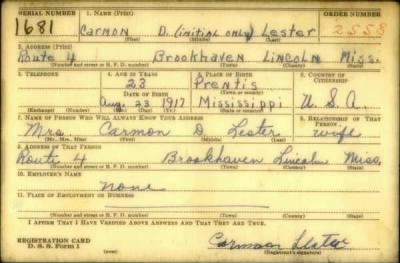 SERIAL NUMBER 1. NAME (Print) ORDER NUMBER
1681 CARMON D. (initial only) Lester 2558
(First) (Middle) (Last)
2. ADDRESS (Print)
Route 4 Brookhaven Lincoln Miss.
(Number and street or R. F. D. number) (Town) (County) (State)
3. TELEPHONE 4. AGE IN YEARS 5. PLACE OF BIRTH 6. COUNTRY OF CITIZENSHIP
23 Prentis
DATE OF BIRTH (Town or county)
Aug. 23 1917 Mississippi U. S. A.
(Exchange) (Number) (Mo.) (Day) (Yr.) (State or country)
7. NAME OF PERSON WHO WILL ALWAYS KNOW YOUR ADDRESS 8. RELATIONSHIP OF THAT PERSON
Mrs. Carmon D. Lester wife
(Mr., Mrs., Miss) (First) (Middle) (Last)
9. ADDRESS OF THAT PERSON
Route 4 Brookhaven Lincoln Miss.
(Number and street or R. F. D. number) (Town) (County) (State)
10. EMPLOYER'S NAME
none
11. PLACE OF EMPLOYMENT OR BUSINESS
(Number and street or R. F. D. number) (Town) (County) (State)
I AFFIRM THAT I HAVE VERIFIED ABOVE ANSWERS AND THAT THEY ARE TRUE.
REGISTRATION CARD
D. S. S. Form 1 Carmon Lester
(Registrant's signature)